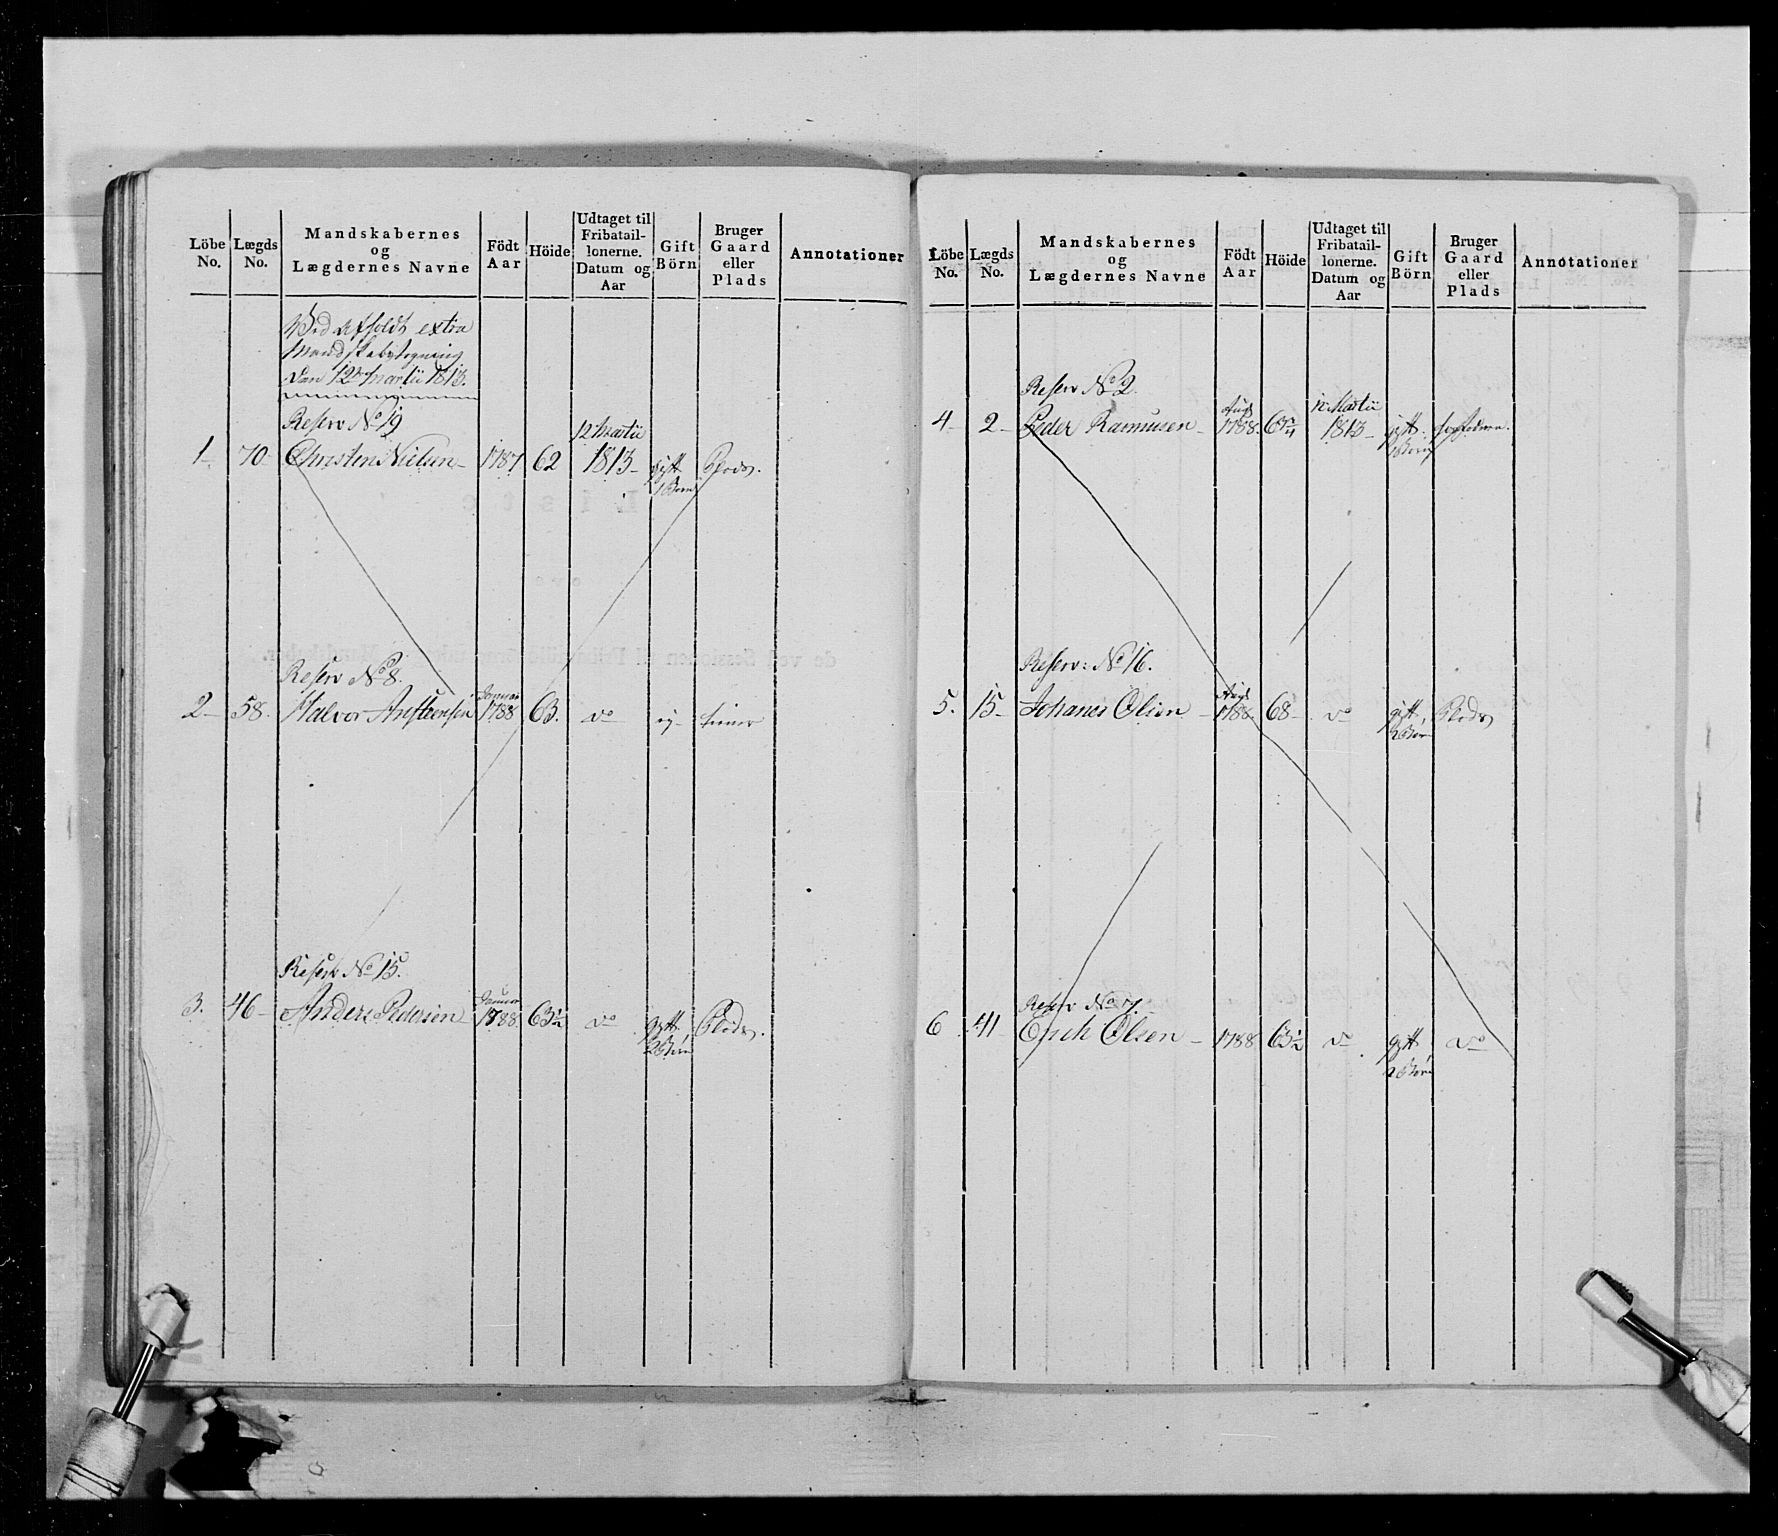 Löbe No.
Lægds No.
Mandskabernes og Lægdernes Navne
Födt Aar
Höide
Udtaget til Fribatail-lonerne. Datum og Aar
Gift Börn
Bruger Gaard eller Plads
Annotationer
Ved Afholdt extra
Mandskabstegning
den 12te Martii 1813.
Reserv No 19
12 Martii
1. 70 Christen Nielsen 1787 62 1813 gift Plads.
1 Børn
Reserv No 8.
Januar
2 58. Halvor 1788 63. do
Reserv No 15.
Januar
3. 46 Anders Pedersen 1788 63½ do gift Plads.
2 Børn
Löbe No.
Lægds No.
Mandskabernes og Lægdernes Navne
Födt Aar
Höide
Udtaget til Fribatail-lonerne. Datum og Aar
Gift Börn
Bruger Gaard eller Plads
Annotationer
Reserv No 2.
Aug 12 Martii
4 2 Peder Rasmusen 1788. 1813 gift
Reserv: No 16.
Aug
5. 15 Johanes Olsen 1788 68 do gift Plads
2 Børn
Reserv No 7.
6 41 Erich Olsen 1788 63½ do gift do
2 Børn